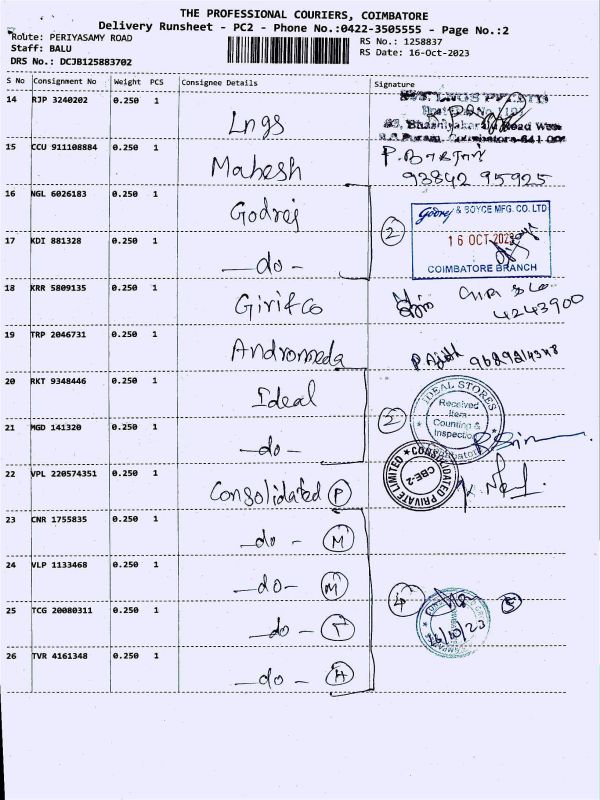 THE PROFESSIONAL COURIERS, COIMBATORE
Delivery Runsheet - PC2 - Phone No.:0422-3505555 - Page No.:2
Route: PERIYASAMY ROAD
Staff: BALU
DRS No.: DCJB125883702
RS No.: 1258837
RS Date: 16-Oct-2023
S No Consignment No Weight PCS Consignee Details Signature
14 RJP 3240202 0.250 1 Lngs
15 CCU 911108884 0.250 1 Mahesh
93842 95925
16 NGL 6026183 0.250 1 Godrej
17 KDI 881328 0.250 1 —do—
2
Godrej & BOYCE MFG. CO. LTD
16 OCT 2023
COIMBATORE BRANCH
18 KRR 5809135 0.250 1 Giri & Co
4243900
19 TRP 2046731 0.250 1 Andromeda
P Ajith
20 RKT 9348446 0.250 1 Ideal
21 MGD 141320 0.250 1 —do—
2
IDEAL STORES
Received
Item
Counting &
Inspection
22 VPL 220574351 0.250 1 Consolidated P
CONSOLIDATED PRIVATE LIMITED
CBE-2
23 CNR 1755835 0.250 1 —do— M
24 VLP 1133468 0.250 1 —do— M
25 TCG 20080311 0.250 1 —do— T
4
5
16/10/23
26 TVR 4161348 0.250 1 —do— H